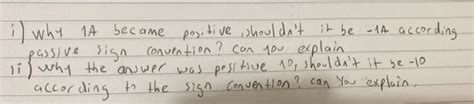 i) why 1A became positive, shouldn't it be -1A according
passive sign convention? can you explain
ii) why the answer was positive 10, shouldn't it be -10
according to the sign convention? can you explain.